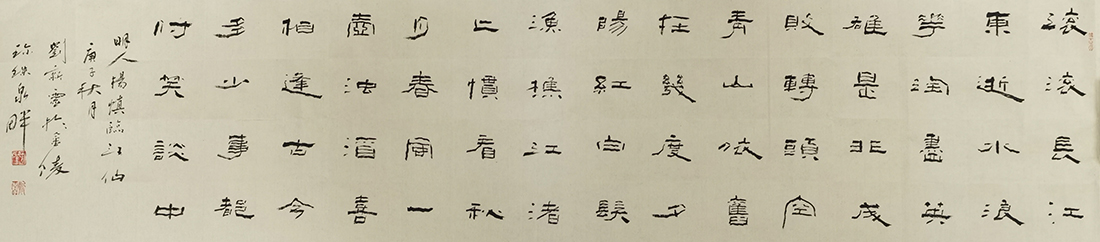 滚滚長江
東逝水浪
華淘盡英
雄是非成
敗轉頭空
青山依舊
在幾度夕
陽紅白髮
漁樵江渚
上慣看秋
月春風一
壺浊酒喜
相逢古今
多少事都
付笑談中
明人楊慎臨江仙
庚子秋月
劉新雲於金陵
珍珠泉畔